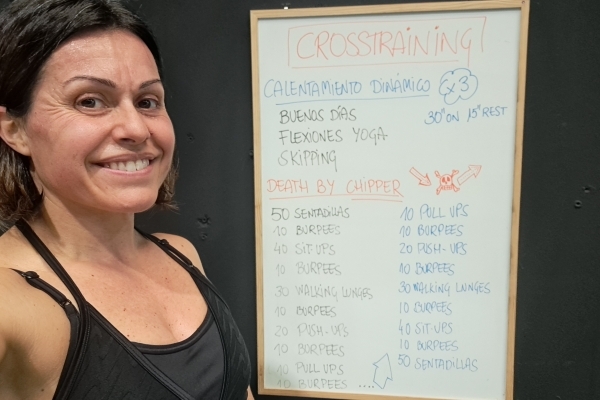 CROSSTRAINING
CALENTAMIENTO DINÁMICO x3
30" ON 15" REST
BUENOS DÍAS
FLEXIONES YOGA
SKIPPING
DEATH BY CHIPPER
50 SENTADILLAS
10 BURPEES
40 SIT-UPS
10 BURPEES
30 WALKING LUNGES
10 BURPEES
20 PUSH-UPS
10 BURPEES
10 PULL UPS
10 BURPEES ....
10 PULL UPS
10 BURPEES
20 PUSH-UPS
10 BURPEES
30 WALKING LUNGES
10 BURPEES
40 SIT-UPS
10 BURPEES
50 SENTADILLAS